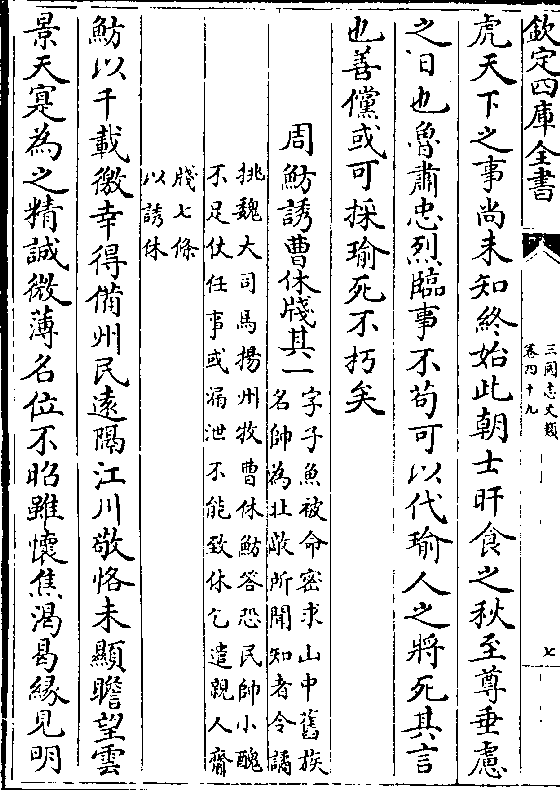 欽定四庫全書
三國志文類
卷四十九
七
虎天下之事尚未知終始此朝士旰食之秋至尊垂慮
之日也魯肅忠烈臨事不苟可以代瑜人之將死其言
也善儻或可採瑜死不朽矣
周魴誘曹休牋其一
字子魚被命密求山中舊族
名帥為北敵所聞知者令譎
挑魏大司馬揚州牧曹休魴答恐民帥小醜
不足仗任事或漏泄不能致休乞遣親人齎
牋七條
以誘休
魴以千載徼幸得備州民遠隔江川敬恪未顯瞻望雲
景天寔為之精誠微薄名位不昭雖懷焦渴曷緣見明